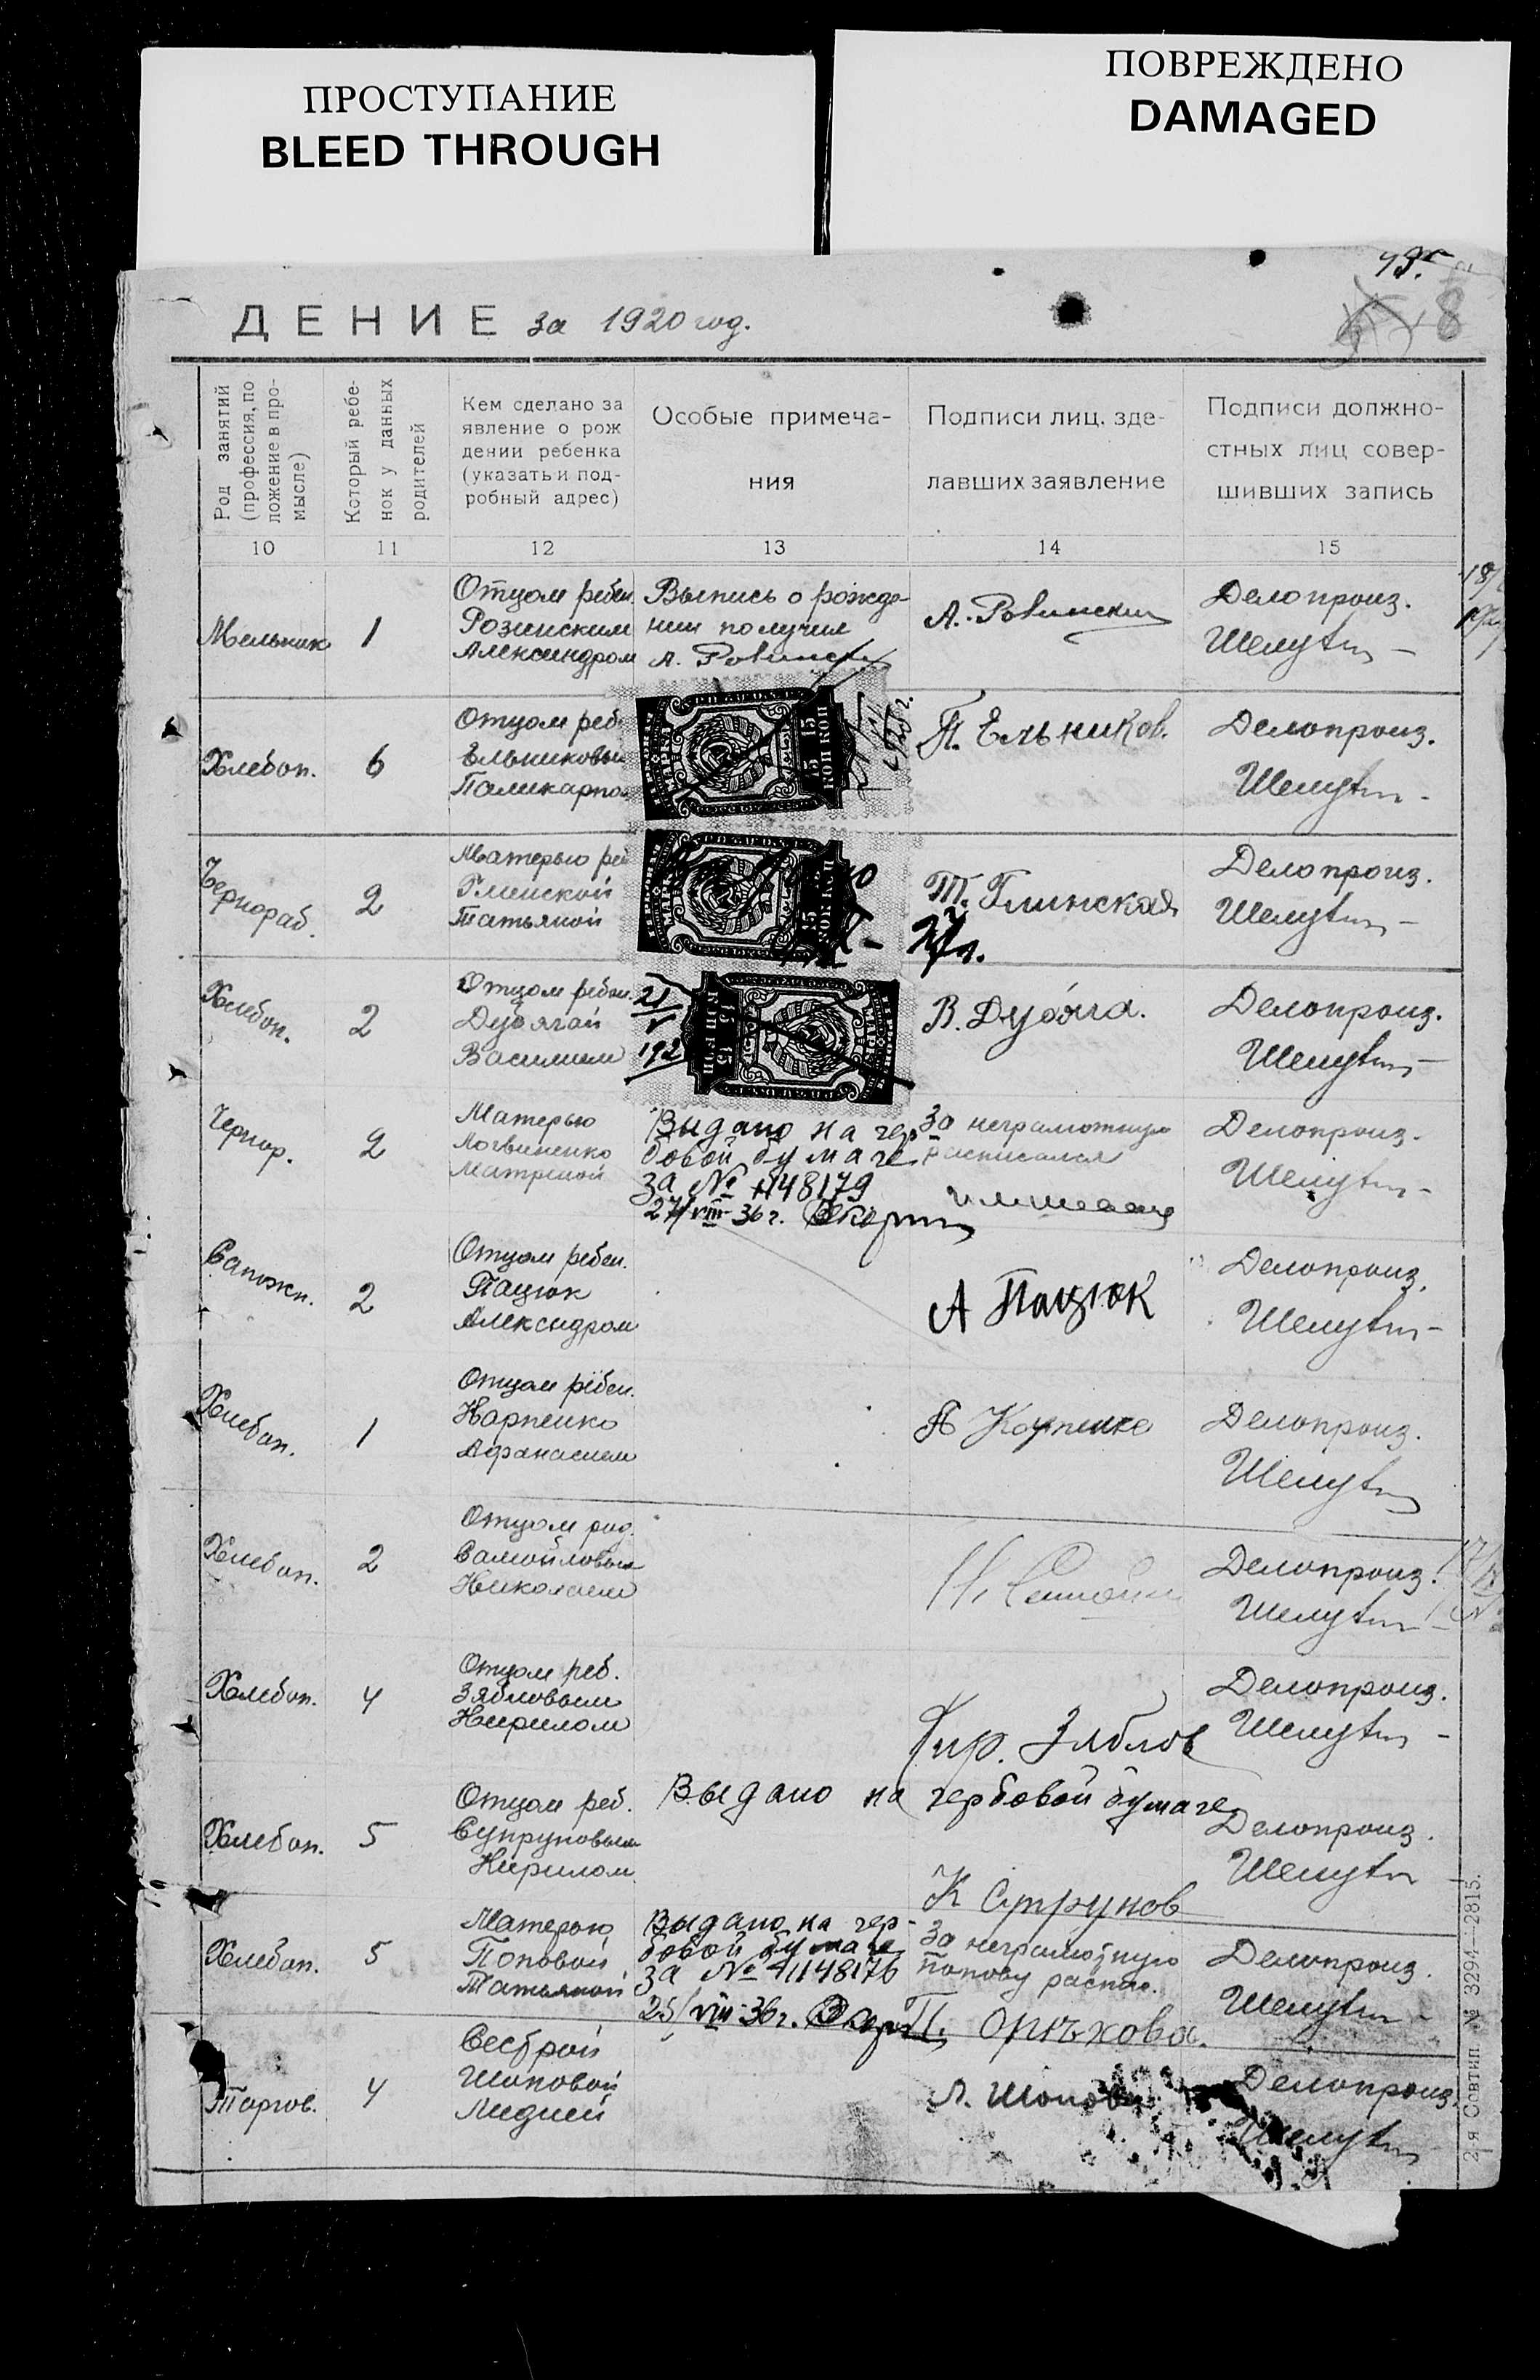 ПРОСТУПАНИЕ
BLEED THROUGH
ПОВРЕЖДЕНО
DAMAGED
ДЕНИЕ за 1920 год.
8
Род занятий
(профессия, по
ложение в про-
мысле)
Который ребе-
нок у данных
родителей
Кем сделано за
явление о рож
дении ребенка
(указать и под-
робный адрес)
Особые примеча-
ния
Подписи лиц. зде-
лавших заявление
Подписи должно-
стных лиц совер-
шивших запись
10 11 12 13 14 15
Мельник 1
Отцом ребен.
Александром
Выпись о рожде-
нии получил
А. Ровинск
А. Ровинский
Делопроиз.
Шелут
Хлебоп. 6
Отцом реб.
Ельниковым
Поликарпом
15 15
КОП КОП
П. Ельников.
Делопроиз.
Шелут
Чернораб. 2
Матерью реб
Глинской
Татьяной
15
Т. Глинская
Делопроиз.
Шелут
Хлебоп. 2
Отцом ребен.
Дубягой
Василием
21/V
192
15 15
КОП КОП
В. Дубяга.
Делопроиз.
Шелут
Чернор. 2
Матерью
Логвиненко
Матреной
Выдано на гер
бовой бумаге
за № 1148179
27/VIII-36 г.
За неграмотную
расписался
Делопроиз.
Шелут
Сапожн. 2
Отцом ребен.
Пацюк
Александром
А Пацюк
Делопроиз.
Шелут
Хлебоп. 1
Отцом ребен.
Карпенко
Афанасием
А Карпенко
Делопроиз.
Шелут
Хлебоп. 2
Отцом
Самойловым
Николаем
Делопроиз.
Шелут
Хлебоп. 4
Отцом реб.
Зябловым
Кирилом
Кир. Зяблов
Делопроиз.
Шелут
Хлебоп. 5
Отцом реб.
Супруновым
Кирилом
Выдано на гербовой бумаге
К Супрунов
Делопроиз.
Шелут
Хлебоп. 5
Матерью
Поповой
Татьяной
Выдано на гер-
бовой бумаге
за № 1148176
25/VIII-36 г.
За неграмотную
Попову распис.
П. Орехова.
Делопроиз.
Шелут
Торгов. 4
Сестрой
Шоповой
Лидией
Л. Шопова
Делопроиз.
Шелут
2-я Совтип. № 3294—2815.